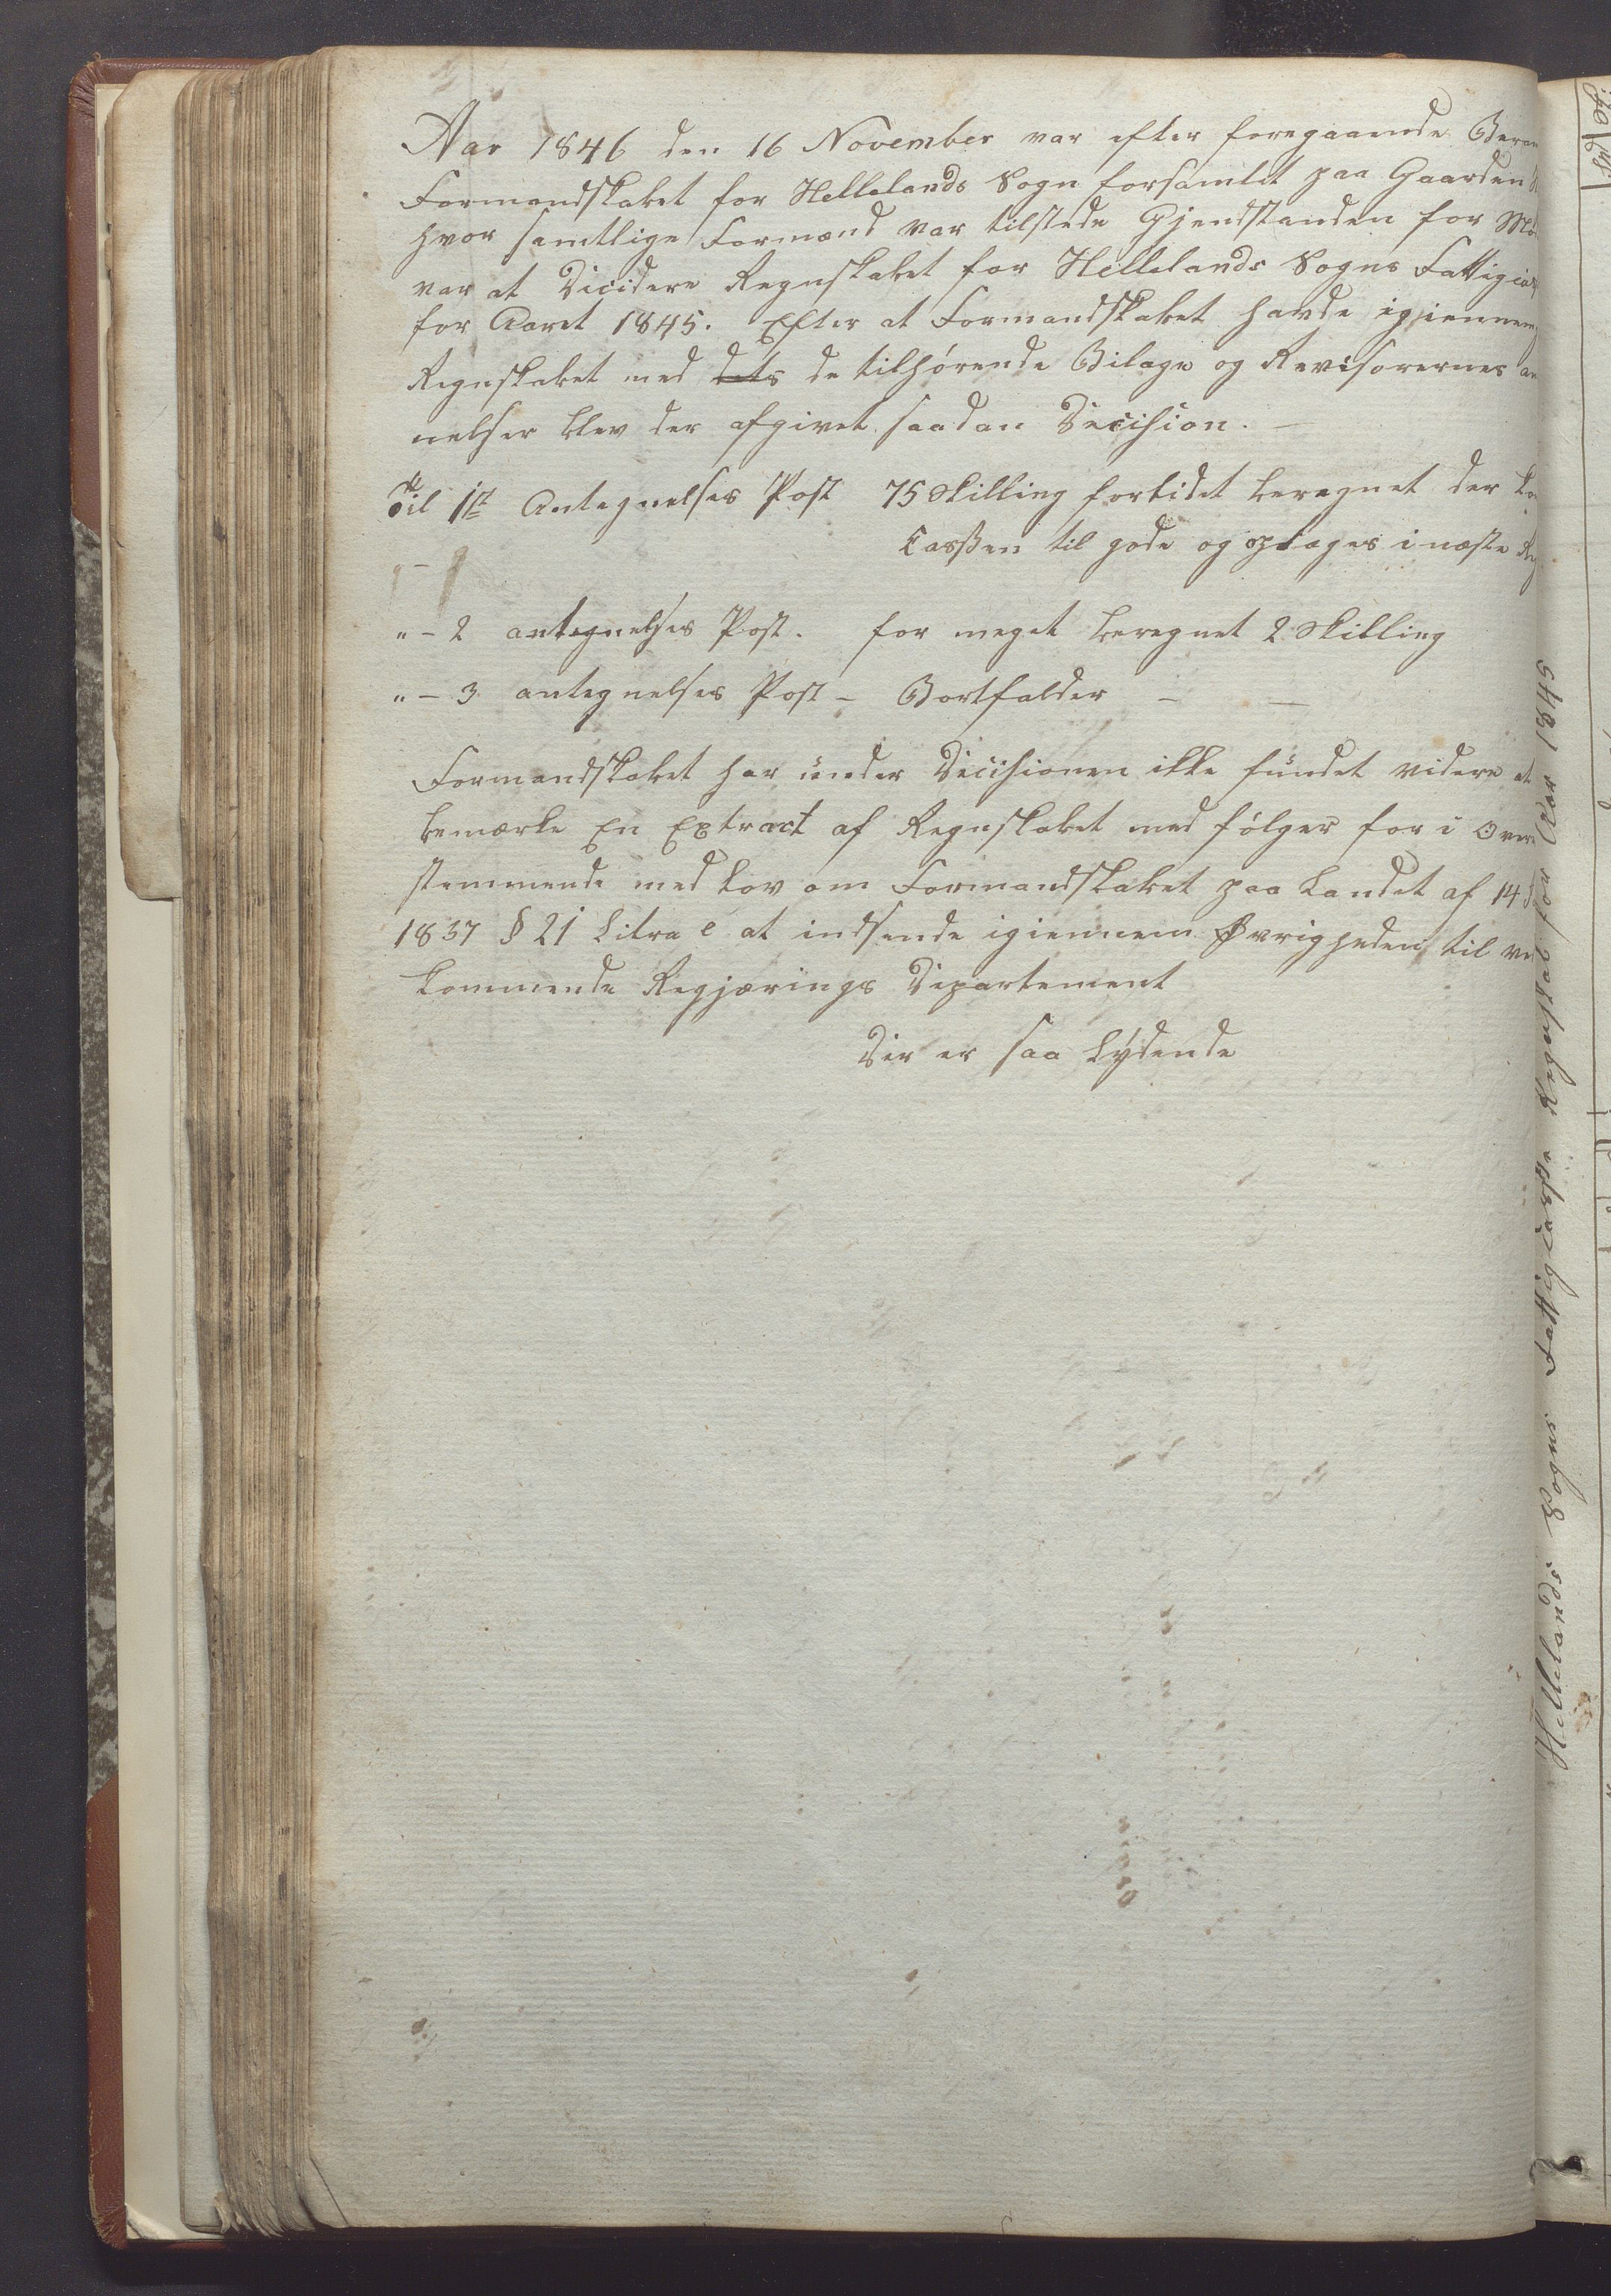 Aar 1846 den 16 November var efter foregaaende Beram
Formandskabet for Hellelands Sogn forsamlet paa Gaarden
hvor samtlige Formænd var tilstede Gjendstanden for Mø
var at Dicidere Regnskabet for Hellelands Sogns Fattigcas
for Aaret 1845. Efter at Formandskabet havde igjennem
Regnskabet med dets de tilhørende Bilage og Revisorernes an
nelser blev der afgivet saadan Decision. —
Til 1st Antegnelses Post 75 Skilling forlidet beregnet der
Casßen til gode og optages i næste Reg
" — 2 antegnelses Post. for meget beregnet 2 Skilling
" — 3 antegnelses Post — Bortfalder — —
Formandskabet har under Decisionen ikke fundet videre at
bemærke En Extract af Regnskabet med følger for i Overe
stemmende med Lov om Formandskabet paa Landet af 14 J
1837 § 21 Litra e at indsende igiennem Øvrigheden til ved
kommende Regjærings Departement
Der er saa lydende
Hellelands Sogns Fattigcasse Regnskab for Aar 1845